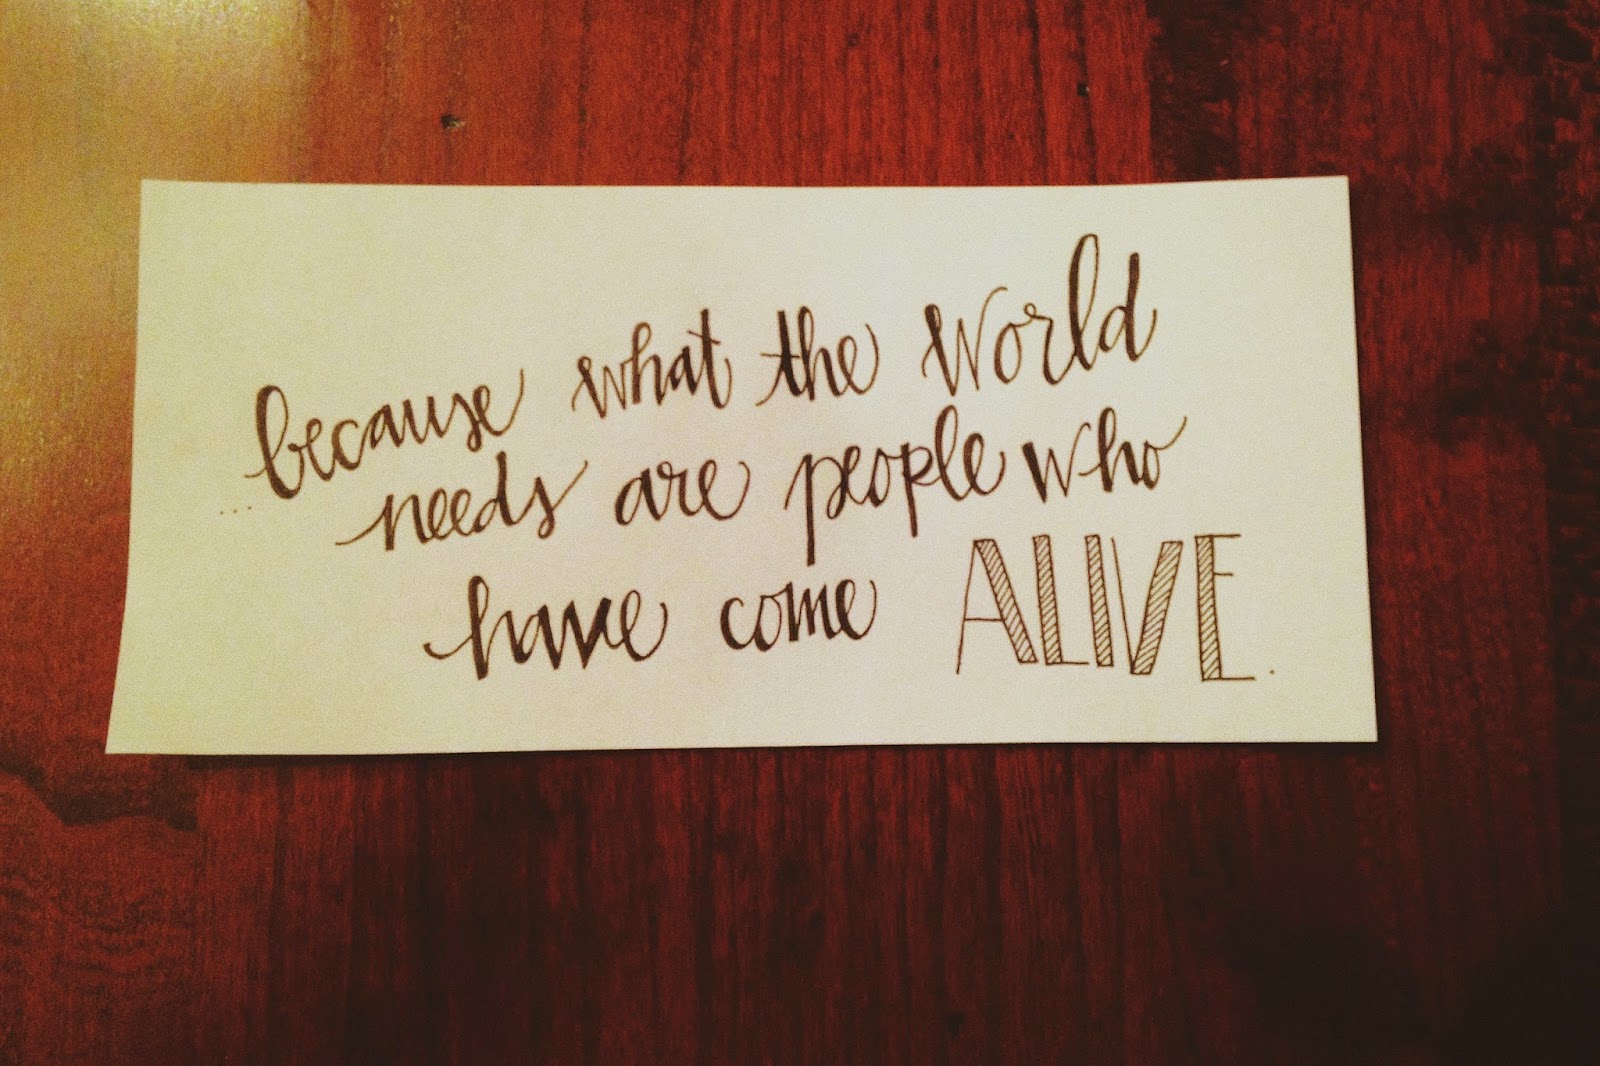 ...because what the world
needs are people who
have come ALIVE.